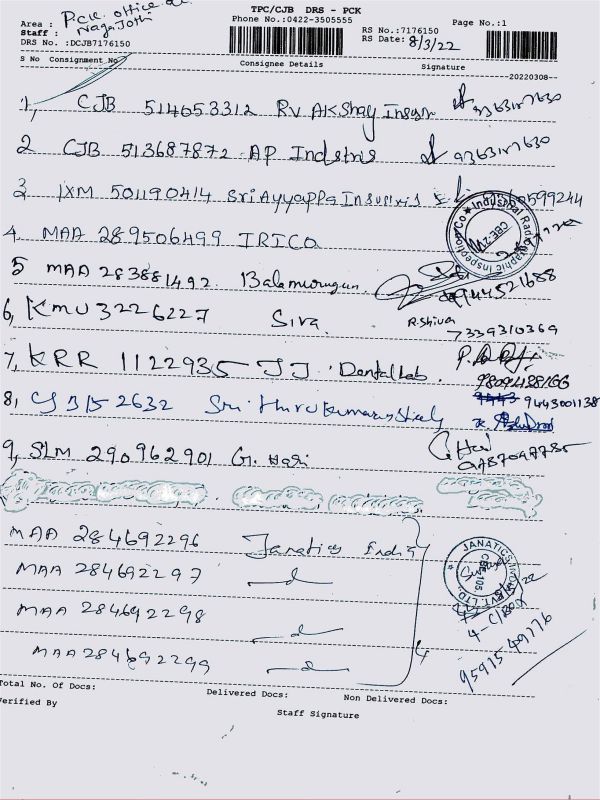 TPC/CJB DRS - PCK
Phone No.:0422-3505555
Page No.:1
Area : P.C.K. office
Staff : Naga Jothi
DRS No. :DCJB7176150
RS No.:7176150
RS Date: 8/3/22
S No Consignment No Consignee Details Signature
20220308
1, CJB 514053312 RV Akshay 9363187630
2 CJB 513687872 AP Indstris 9363187630
3 IXM 501190414 Sri Ayyappa
4 MAA 289506499 IRICO
5 MAA 283881492. Balamurugan. 9944521688
6, KMU 3226227 Siva. R.Shiva 7339310369
7, KRR 1122935 JJ Dental Lab. 9809428166
8, 2632 Sri 9443001138
9, SLM 290962901 G. Hari 9787097785
MAA 284692296 Janatics India
MAA 284692297
MAA 284692298
MAA 284692299
4
JANATICS INDIA PVT. LTD
CBE 105
95915 49776
Total No. Of Docs: Delivered Docs: Non Delivered Docs:
Verified By Staff Signature